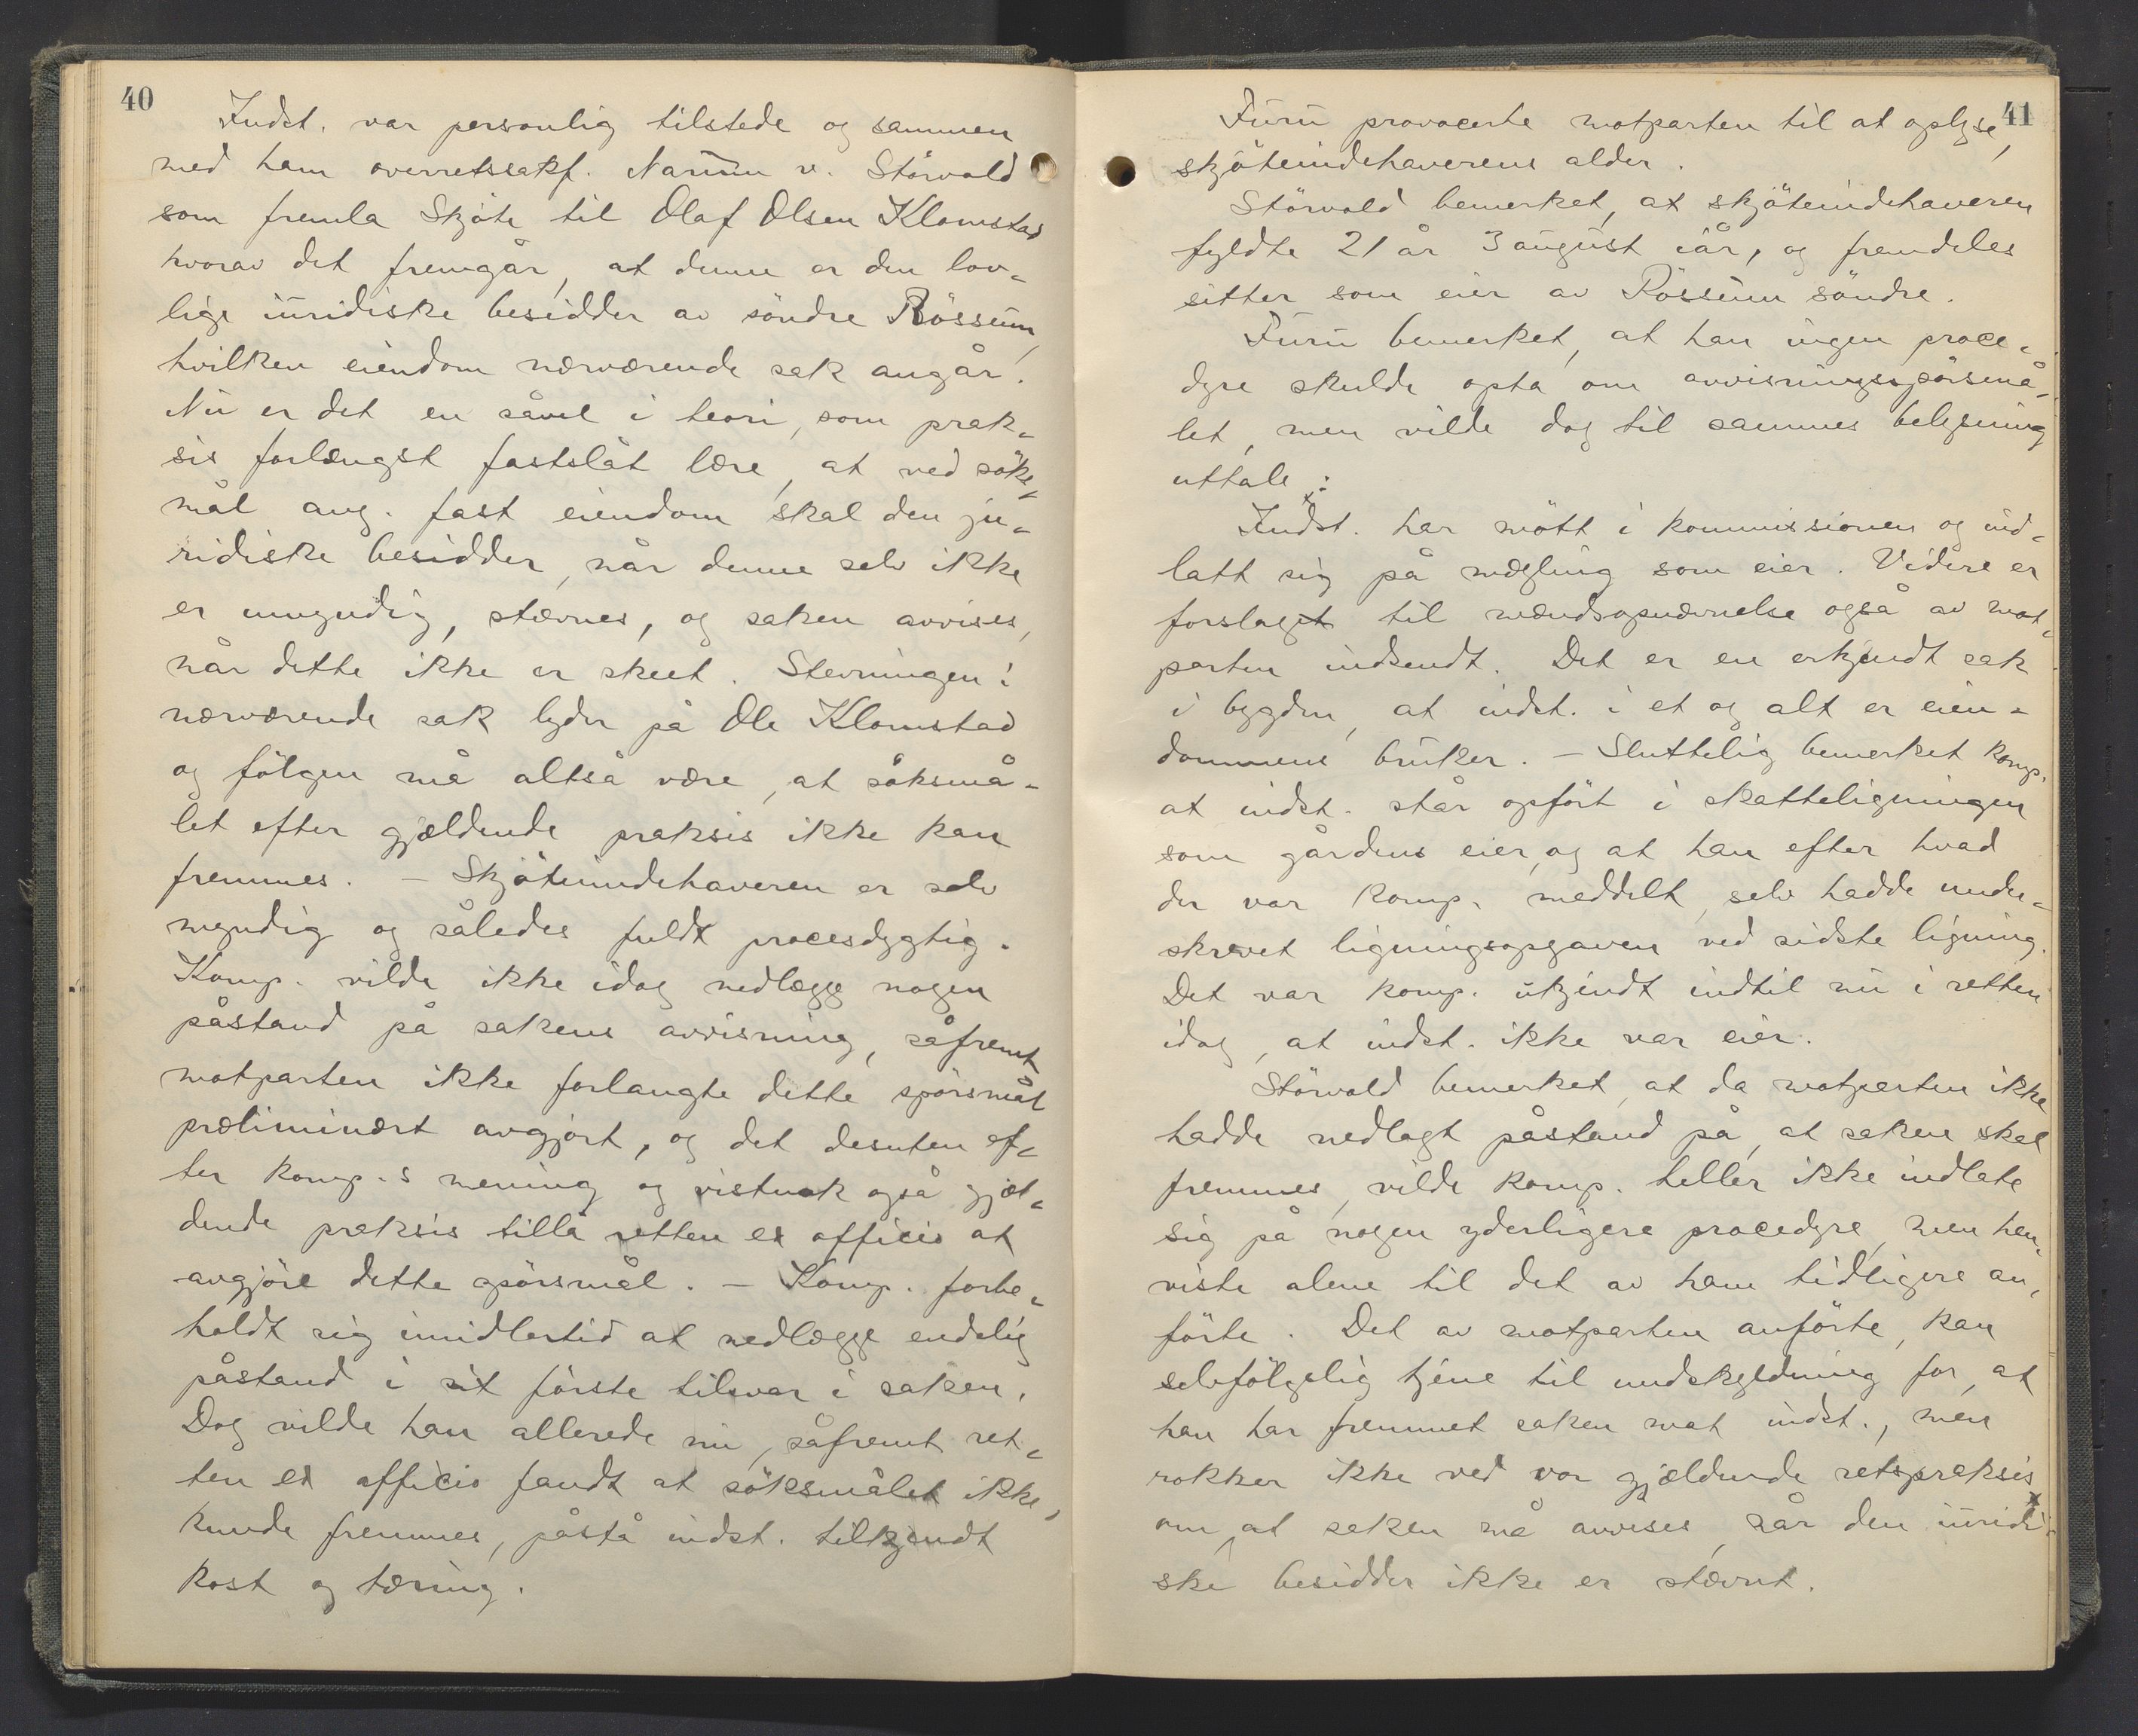 40
Indst. var personlig tilstede og sammen
med ham overretssakf. Narum v. Störvold
som fremla Skjöte til Olaf Olsen Klomstad
hvorav det fremgår, at denne er den lov-
lige iuridiske besidder av söndre Rössum,
hvilken eiendom nærværende sak angår.
Nu er det en såvel i teori, som prak-
sis forlængst fastslåt lære, at ved söke-
mål ang. fast eiendom skal den ju-
ridiske besidder, når denne selv ikke
er umyndig, stævnes, og saken avvises,
når dette ikke er skeet. Stevningen i
nærværende sak lyder på Ole Klomstad
og fölgen må altså være, at söksmå-
let efter gjældende praksis ikke kan
fremmes. - Skjöteindehaveren er selv
myndig og således fuldt procesdygtig.
Komp. vilde ikke idag nedlægge nogen
påstand på sakens avvisning, såfremt
motparten ikke forlangte dette spörsmål
præliminært avgjort, og det desuten ef-
ter komp.s mening og vistnok også gjæl-
dende praksis tillå retten ex officio at
avgjöre dette spörsmål. - Komp. forbe-
holdt sig imidlertid at nedlægge endelig
påstand i sit förste tilsvar i saken.
Dog vilde han allerede nu, såfremt ret-
ten ex officio fandt at söksmålet ikke
kunde fremmes, påstå indst. tilkjendt
kost og tæring.
41
Furu provocerte motparten til at oplyse,
skjöteindehaverens alder.
Störvold bemerket, at skjöteindehaveren
fyldte 21 år 3 august iår, og fremdeles
sitter som eier av Rössum söndre.
Furu bemerket, at han ingen proce-
dyre skulde opta om avvisningsspörsmå-
let, men vilde dog til sammes belysning
uttale:
Indst. har mött i kommissionen og ind-
latt sig på mægling som eier. Videre er
forslaget til mændsopnævnelse også av mot-
parten indsendt. Det er en erkjendt sak
i bygden, at indst. i et og alt er eien-
dommens bruker. - Sluttelig bemerket komp.
at indst. står opfört i skatteligningen
som gårdens eier, og at han efter hvad
der var komp. meddelt, selv hadde under-
skrevet ligningsopgaven ved sidste ligning.
Det var komp. ukjendt indtil nu i retten
idag, at indst. ikke var eier.
Störvold bemerket, at da motparten ikke
hadde nedlagt påstand på, at saken skal
fremmes, vilde komp. heller ikke indlate
sig på nogen yderligere procedyre, men hen-
viste alene til det av ham tidligere an-
förte. Det av motparten anförte, kan
selvfölgelig tjene til undskyldning for, at
han har fremmet saken mot indst., men
rokker ikke ved vor gjældende retspraksis
om, at saken må avvises, når den iuridi-
ske besidder ikke er stævnt.